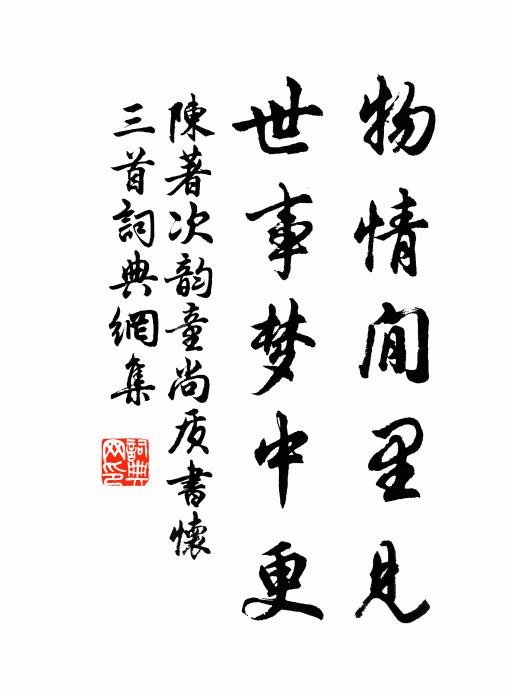 物情閒里見
世事梦中更
陳著次韵童尚质書懷
三首詞典網集
詞典
网印